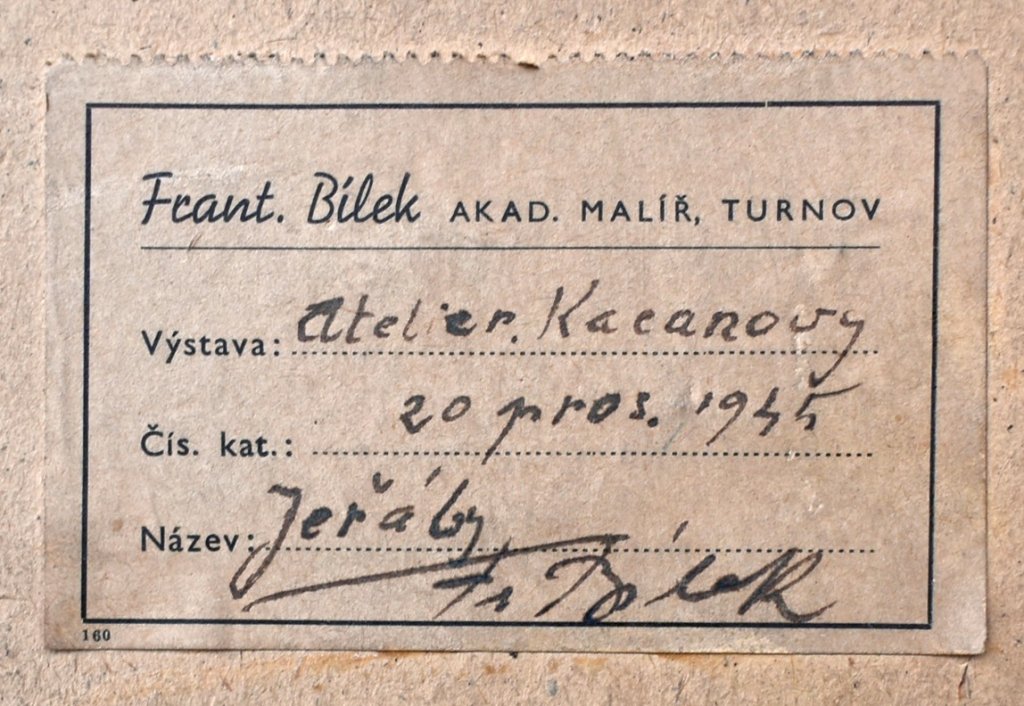 Frant. Bílek AKAD. MALÍŘ, TURNOV
Výstava: Atelier. Kacanovy
Čís. kat.: 20 pros. 1945
Název: Jeřáby
Fr Bílek
160